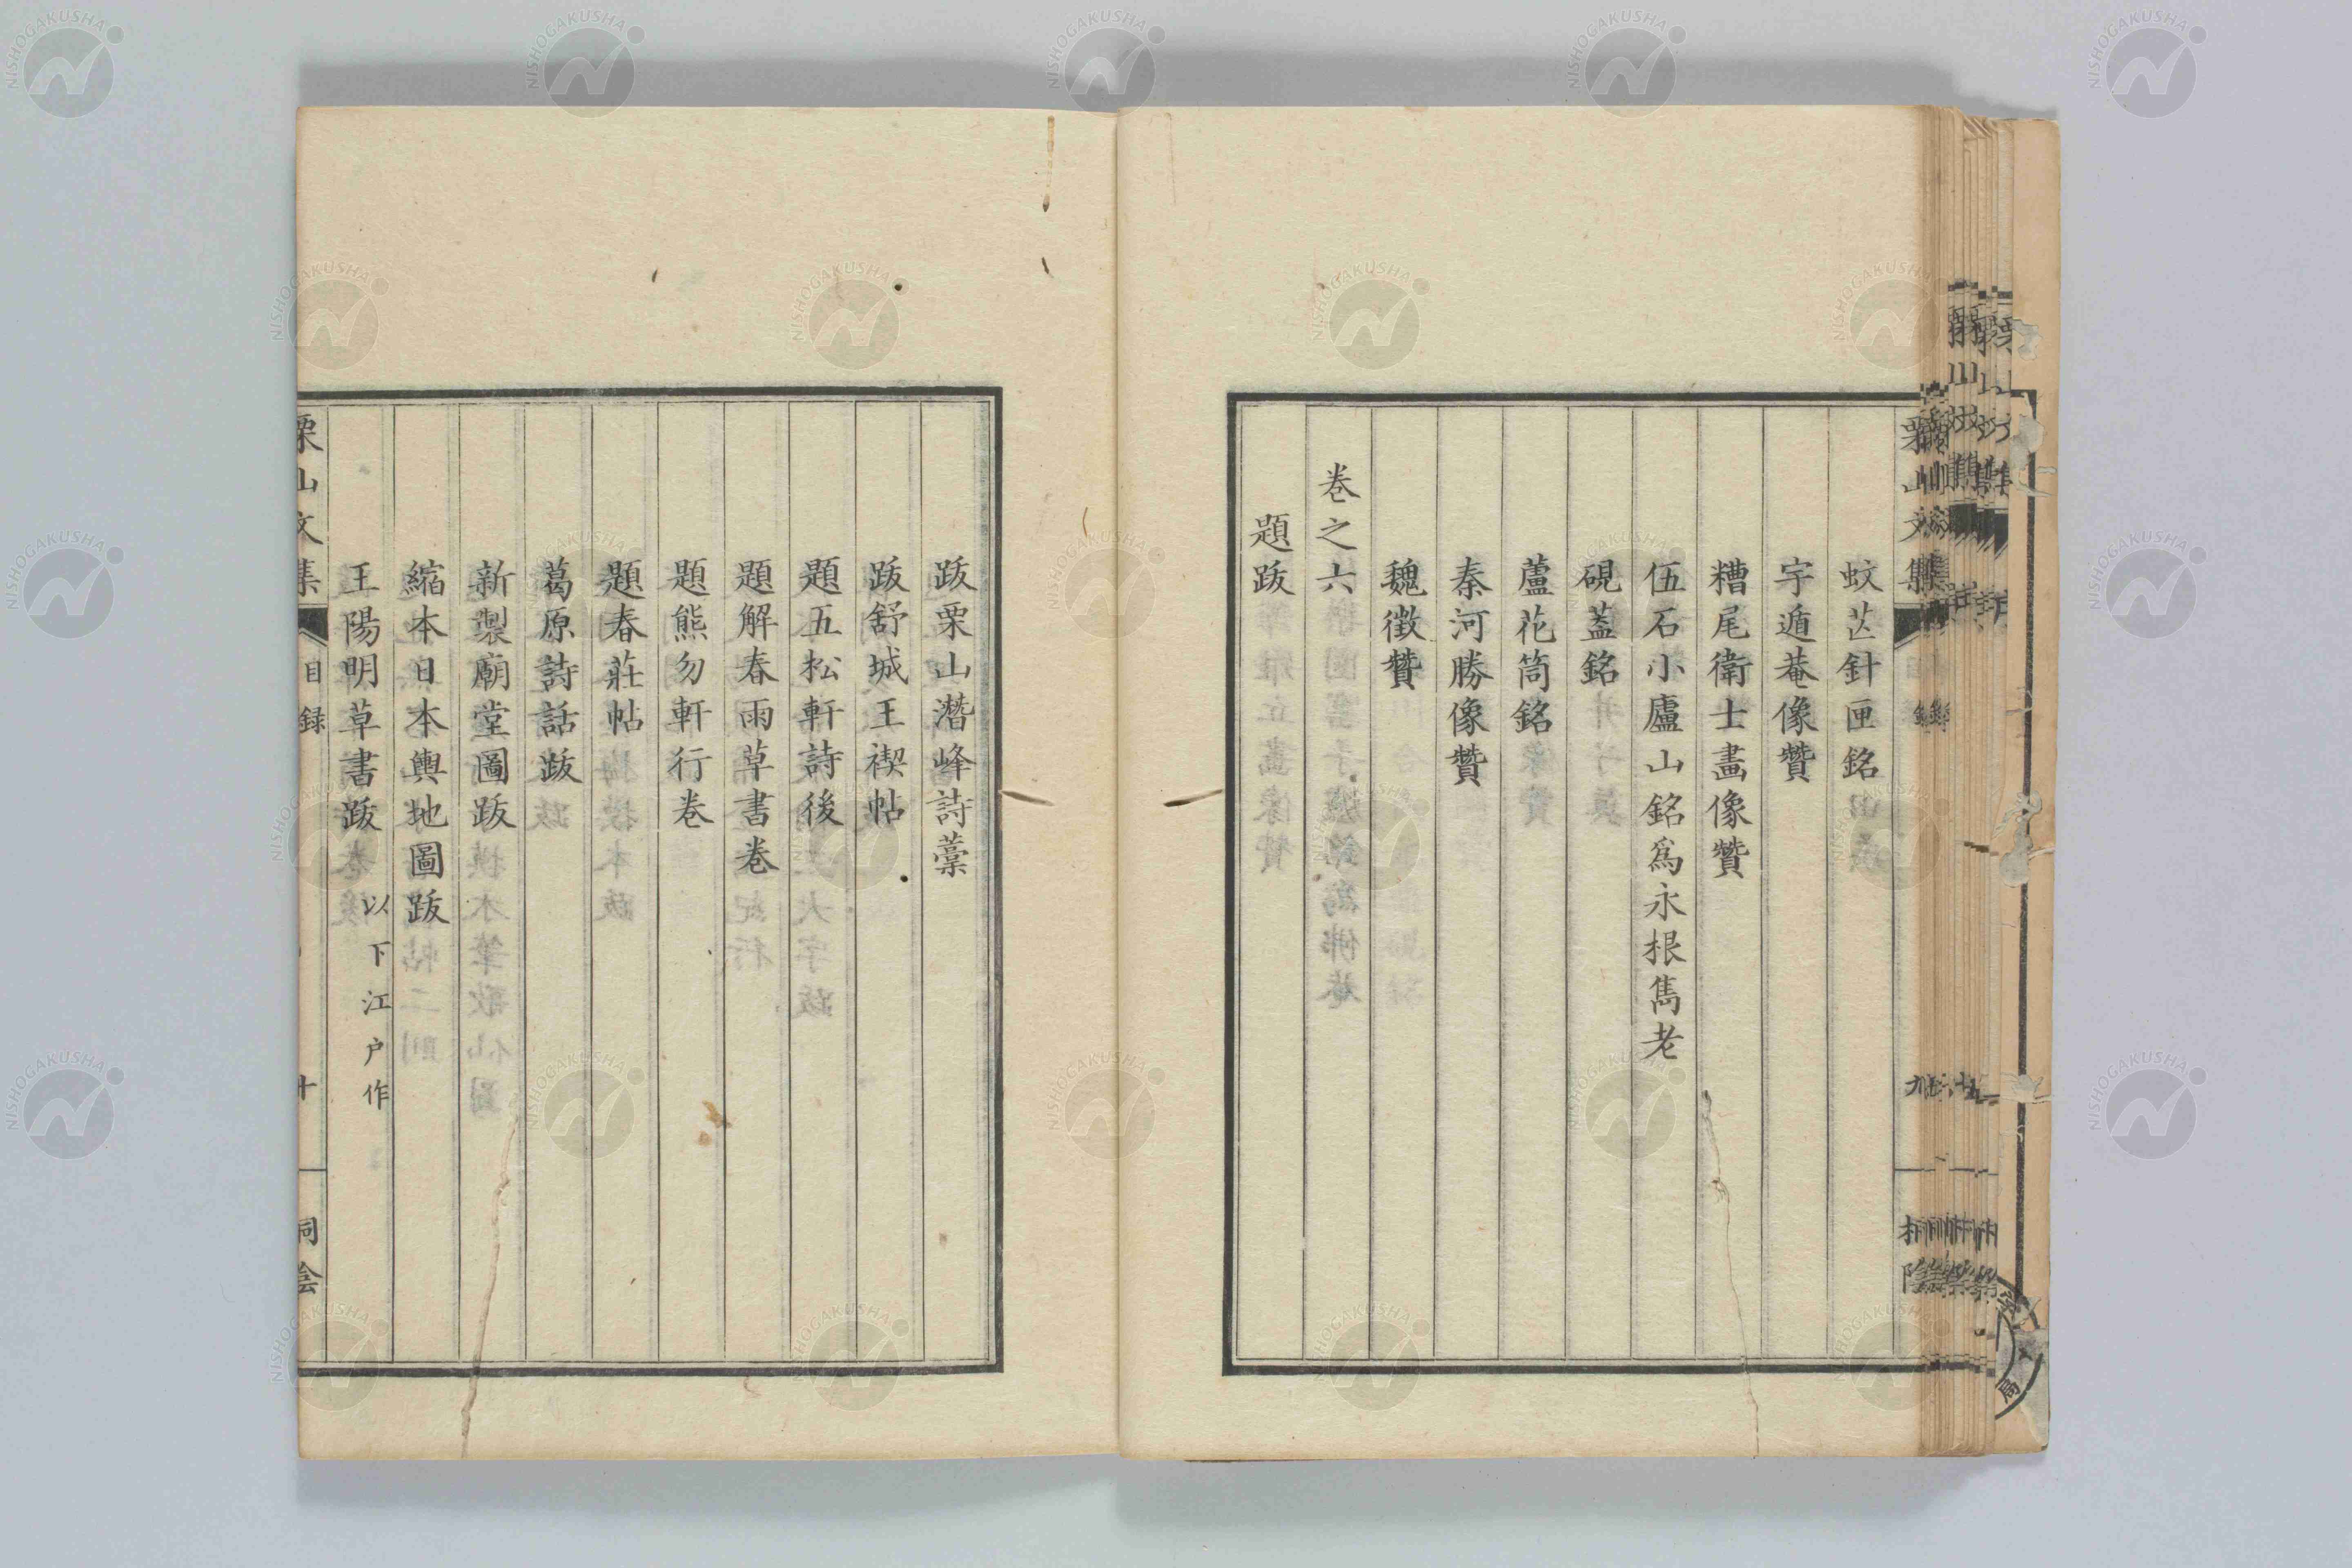 蚊芒針匣銘
宇遁菴像贊
糟尾衛士畫像贊
伍石小廬山銘爲永根雋老
硯蓋銘
蘆花筒銘
秦河勝像贊
魏徵贊
卷之六
題跋
跋栗山潛峰詩藁
跋舒城王禊帖
題五松軒詩後
題解春雨草書卷
題熊勿軒行卷
題春莊帖
葛原詩話跋
新製廟堂圖跋
縮本日本輿地圖跋
王陽明草書跋 以下江户作
栗山文集 目録 十 桐陰